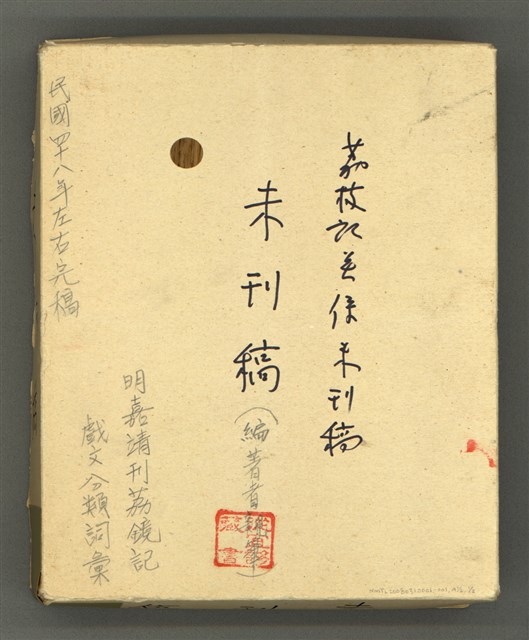 荔枝記關係未刊稿
未刊稿（編著者
藏書
民國四十八年左右完稿
明嘉靖刊荔鏡記
戲文分類詞彙